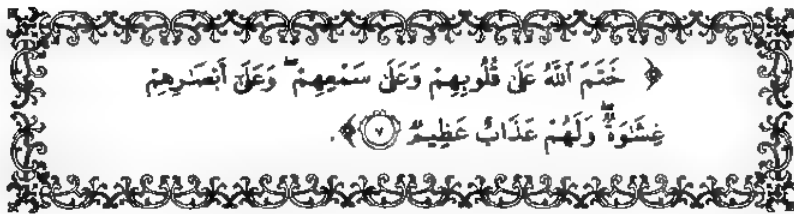 ﴿ خَتَمَ ٱللَّهُ عَلَىٰ قُلُوبِهِمْ وَعَلَىٰ سَمْعِهِمْ ۖ وَعَلَىٰٓ أَبْصَـٰرِهِمْ
غِشَـٰوَةٌۭ ۖ وَلَهُمْ عَذَابٌ عَظِيمٌۭ ٧ ﴾.